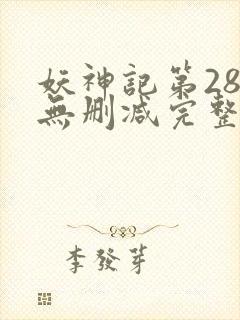 妖神記第28
無删减完整
李發芽